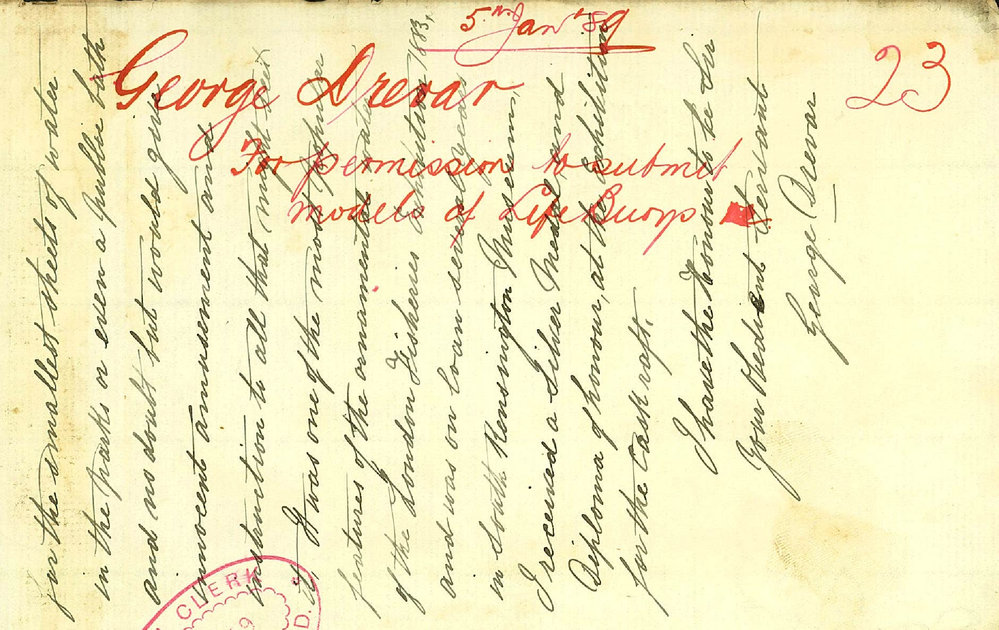 5th Jany '89
23
George Drevar
For permission to submit
models of Life Buoys
for the smallest sheets of water
in the parks or even a public bath
and no doubt but would give
innocent amusement and
instruction to all that might see
it, It was one of the most popular
features of the ornamental water
of the London Fisheries Exhibition 1883,
and was on loan several years
in South Kensington Museum,
I received a Silver Medal and
Diploma of honour, at the Exhibition
for the Cask raft.
I have the Honour to be Sir
Your Obedient Servant
George Drevar
CLERK